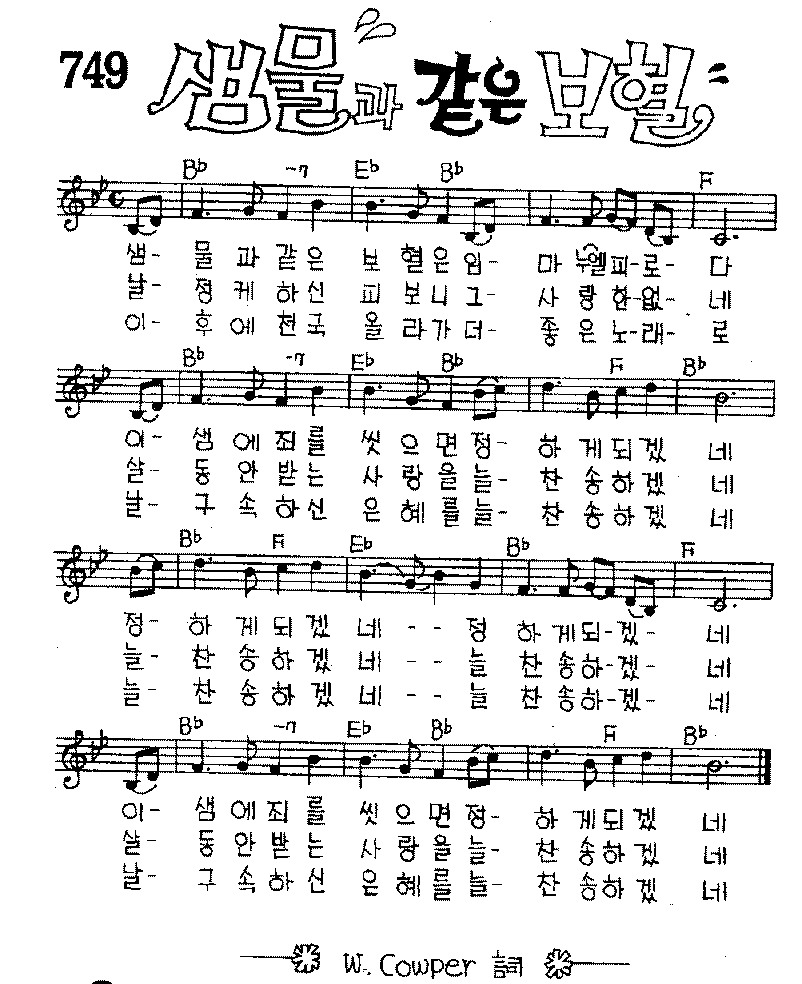 749 샘물과 같은 보혈
Bb -7 Eb Bb F
샘- 물 과 같 은 보 혈 은 임- 마 누엘 피-로- 다
날- 정 케 하 신 피 보 니 그- 사 랑 한-없- 네
이- 후 에 천 국 올 라 가 더- 좋 은 노-래- 로
Bb -7 Eb Bb F Bb
이- 샘 에 죄 를 씻 으 면 정- 하 게 되 겠 네
살- 동 안 받 는 사 랑 을 늘- 찬 송 하 겠 네
날- 구 속 하 신 은 혜 를 늘- 찬 송 하 겠 네
Bb F Eb Bb F
정- 하 게 되 겠 네 - - 정 하 게 되-겠- 네
늘- 찬 송 하 겠 네 - - 늘 찬 송 하-겠- 네
늘- 찬 송 하 겠 네 - - 늘 찬 송 하-겠- 네
Bb -7 Eb Bb F Bb
이- 샘 에 죄 를 씻 으 면 정- 하 게 되 겠 네
살- 동 안 받 는 사 랑 을 늘- 찬 송 하 겠 네
날- 구 속 하 신 은 혜 를 늘- 찬 송 하 겠 네
W. Cowper 詞